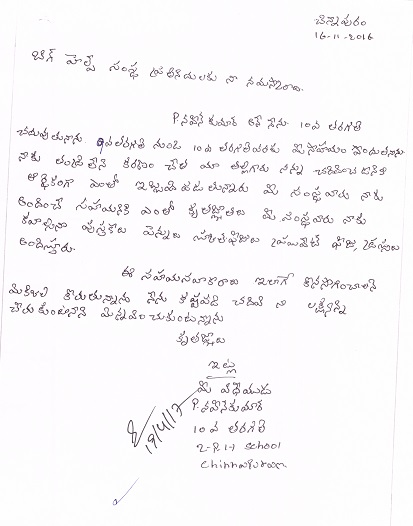 చిన్నాపురం
16-11-2016
బిగ్ హెల్ప్ సంస్థ ప్రతినిధులకు నా నమస్కారాలు.
P. నవీన్ కుమార్ అనే నేను 10వ తరగతి
చదువుతున్నాను. 9వతరగతి నుండి 10వ తరగతివరకు మీ సహాయం పొందుతున్నాను
నాకు తండ్రిలేని కారణం చేత మా తల్లిగారు నన్ను చదివించడానికి
ఆర్థికంగా ఎంతో ఇబ్బంది పడుతున్నారు మీ సంస్థవారు నాకు
అందించే సహాయానికి ఎంతో కృతజ్ఞతలు మీ సంస్థవారు నాకు
కావలసిన పుస్తకాలు పెన్నులు స్కూలుఫీజులు ప్రయివేట్ ఫీజు,
అందిస్తారు.
ఈ సహాయసహకారాలు ఇలాగే కొనసాగించాలని
మిమ్మల్ని కోరుతున్నాను నేను కష్టపడి చదివి నా లక్ష్యాన్ని
చేరుకుంటానని మిన్నవించుకుంటున్నాను
కృతజ్ఞతలు
ఇట్లు
మీ విధేయుడు
P. నవీన్ కుమార్
10వ తరగతి
Z.P.H School
Chinnapuram
19/4/17